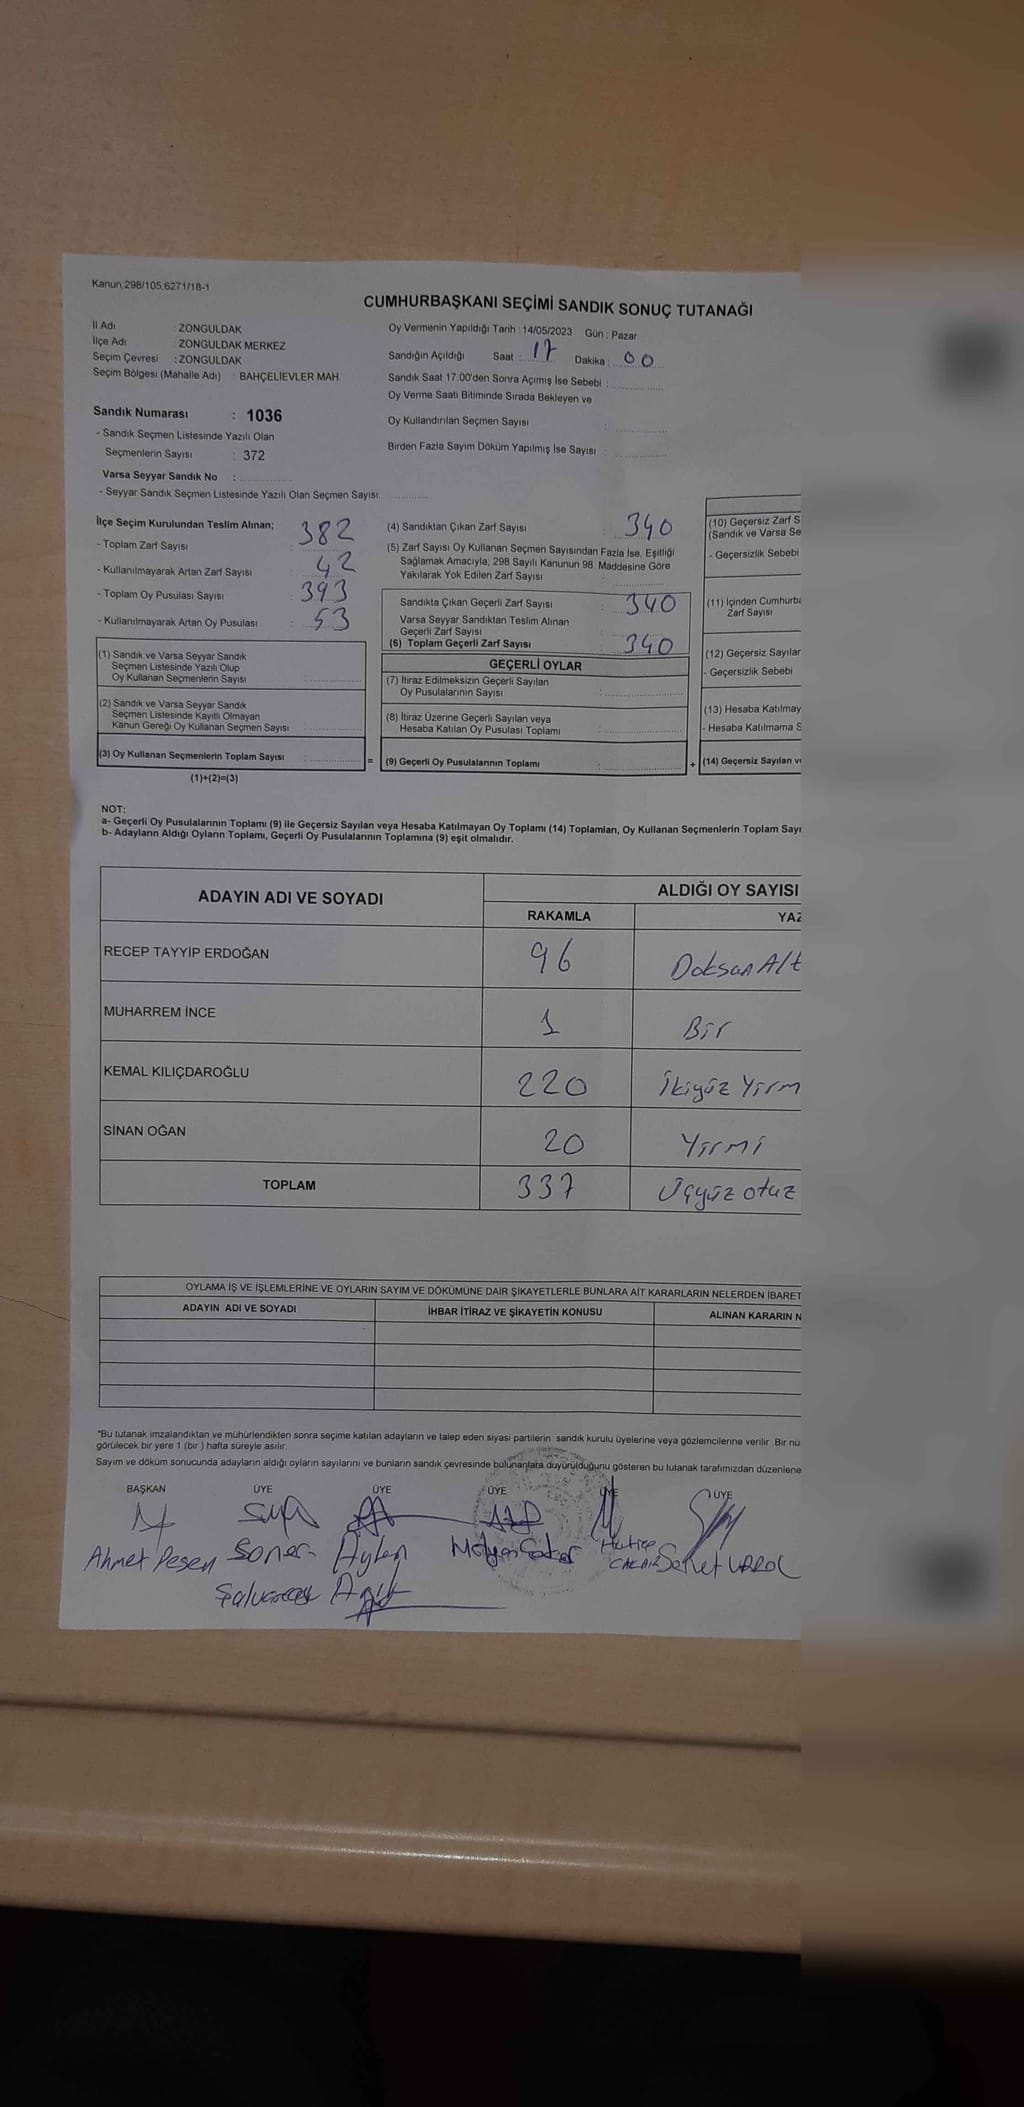 Kanun,298/105,6271/18-1
CUMHURBAŞKANI SEÇİMİ SANDIK SONUÇ TUTANAĞI
İl Adı : ZONGULDAK
İlçe Adı ZONGULDAK MERKEZ
Seçim Çevresi : ZONGULDAK
Seçim Bölgesi (Mahalle Adı) : BAHÇELİEVLER MAH.
Sandık Numarası : 1036
- Sandık Seçmen Listesinde Yazılı Olan
Seçmenlerin Sayısı : 372
Varsa Seyyar Sandık No :
- Seyyar Sandık Seçmen Listesinde Yazılı Olan Seçmen Sayısı
Oy Vermenin Yapıldığı Tarih : 14/05/2023 Gün : Pazar
Sandığın Açıldığı Saat : 17 Dakika : 00
Sandık Saat 17:00'den Sonra Açımış İse Sebebi :
Oy Verme Saati Bitiminde Sırada Bekleyen ve
Oy Kullandırılan Seçmen Sayısı :
Birden Fazla Sayım Döküm Yapılmış İse Sayısı :
İlçe Seçim Kurulundan Teslim Alınan;
- Toplam Zarf Sayısı : 382
- Kullanılmayarak Artan Zarf Sayısı : 42
- Toplam Oy Pusulası Sayısı : 393
- Kullanılmayarak Artan Oy Pusulası : 53
(1) Sandık ve Varsa Seyyar Sandık
Seçmen Listesinde Yazılı Olup
Oy Kullanan Seçmenlerin Sayısı :
(2) Sandık ve Varsa Seyyar Sandık
Seçmen Listesinde Kayıtlı Olmayan
Kanun Gereği Oy Kullanan Seçmen Sayısı :
(3) Oy Kullanan Seçmenlerin Toplam Sayısı :
(1)+(2)=(3)
=
(4) Sandıktan Çıkan Zarf Sayısı : 340
(5) Zarf Sayısı Oy Kullanan Seçmen Sayısından Fazla İse, Eşitliği
Sağlamak Amacıyla; 298 Sayılı Kanunun 98. Maddesine Göre
Yakılarak Yok Edilen Zarf Sayısı :
Sandıkta Çıkan Geçerli Zarf Sayısı : 340
Varsa Seyyar Sandıktan Teslim Alınan
Geçerli Zarf Sayısı
(6) Toplam Geçerli Zarf Sayısı : 340
GEÇERLİ OYLAR
(7) İtiraz Edilmeksizin Geçerli Sayılan
Oy Pusulalarının Sayısı :
(8) İtiraz Üzerine Geçerli Sayılan veya
Hesaba Katılan Oy Pusulası Toplamı :
(9) Geçerli Oy Pusulalarının Toplamı :
+
(10) Geçersiz Zarf S
(Sandık ve Varsa Se
- Geçersizlik Sebebi
(11) İçinden Cumhurba
Zarf Sayısı
(12) Geçersiz Sayılar
- Geçersizlik Sebebi
(13) Hesaba Katılmay
- Hesaba Katılmama S
(14) Geçersiz Sayılan v
NOT:
a- Geçerli Oy Pusulalarının Toplamı (9) ile Geçersiz Sayılan veya Hesaba Katılmayan Oy Toplamı (14) Toplamları, Oy Kullanan Seçmenlerin Toplam Sayı
b- Adayların Aldığı Oyların Toplamı, Geçerli Oy Pusulalarının Toplamına (9) eşit olmalıdır.
ADAYIN ADI VE SOYADI ALDIĞI OY SAYISI
RAKAMLA YAZ
RECEP TAYYİP ERDOĞAN 96 Doksan Alt
MUHARREM İNCE 1 Bir
KEMAL KILIÇDAROĞLU 220 İkiyüz Yirm
SİNAN OĞAN 20 Yirmi
TOPLAM 337 Üçyüz otuz
OYLAMA İŞ VE İŞLEMLERİNE VE OYLARIN SAYIM VE DÖKÜMÜNE DAİR ŞİKAYETLERLE BUNLARA AİT KARARLARIN NELERDEN İBARET
ADAYIN ADI VE SOYADI İHBAR İTİRAZ VE ŞİKAYETİN KONUSU ALINAN KARARIN N
*Bu tutanak imzalandıktan ve mühürlendikten sonra seçime katılan adayların ve talep eden siyasi partilerin sandık kurulu üyelerine veya gözlemcilerine verilir. Bir nü
görülecek bir yere 1 (bir) hafta süreyle asılır.
Sayım ve döküm sonucunda adayların aldığı oyların sayılarını ve bunların sandık çevresinde bulunanlara duyurulduğunu gösteren bu tutanak tarafımızdan düzenlene
BAŞKAN ÜYE ÜYE ÜYE ÜYE ÜYE
Ahmet Pesen Soner Aylen